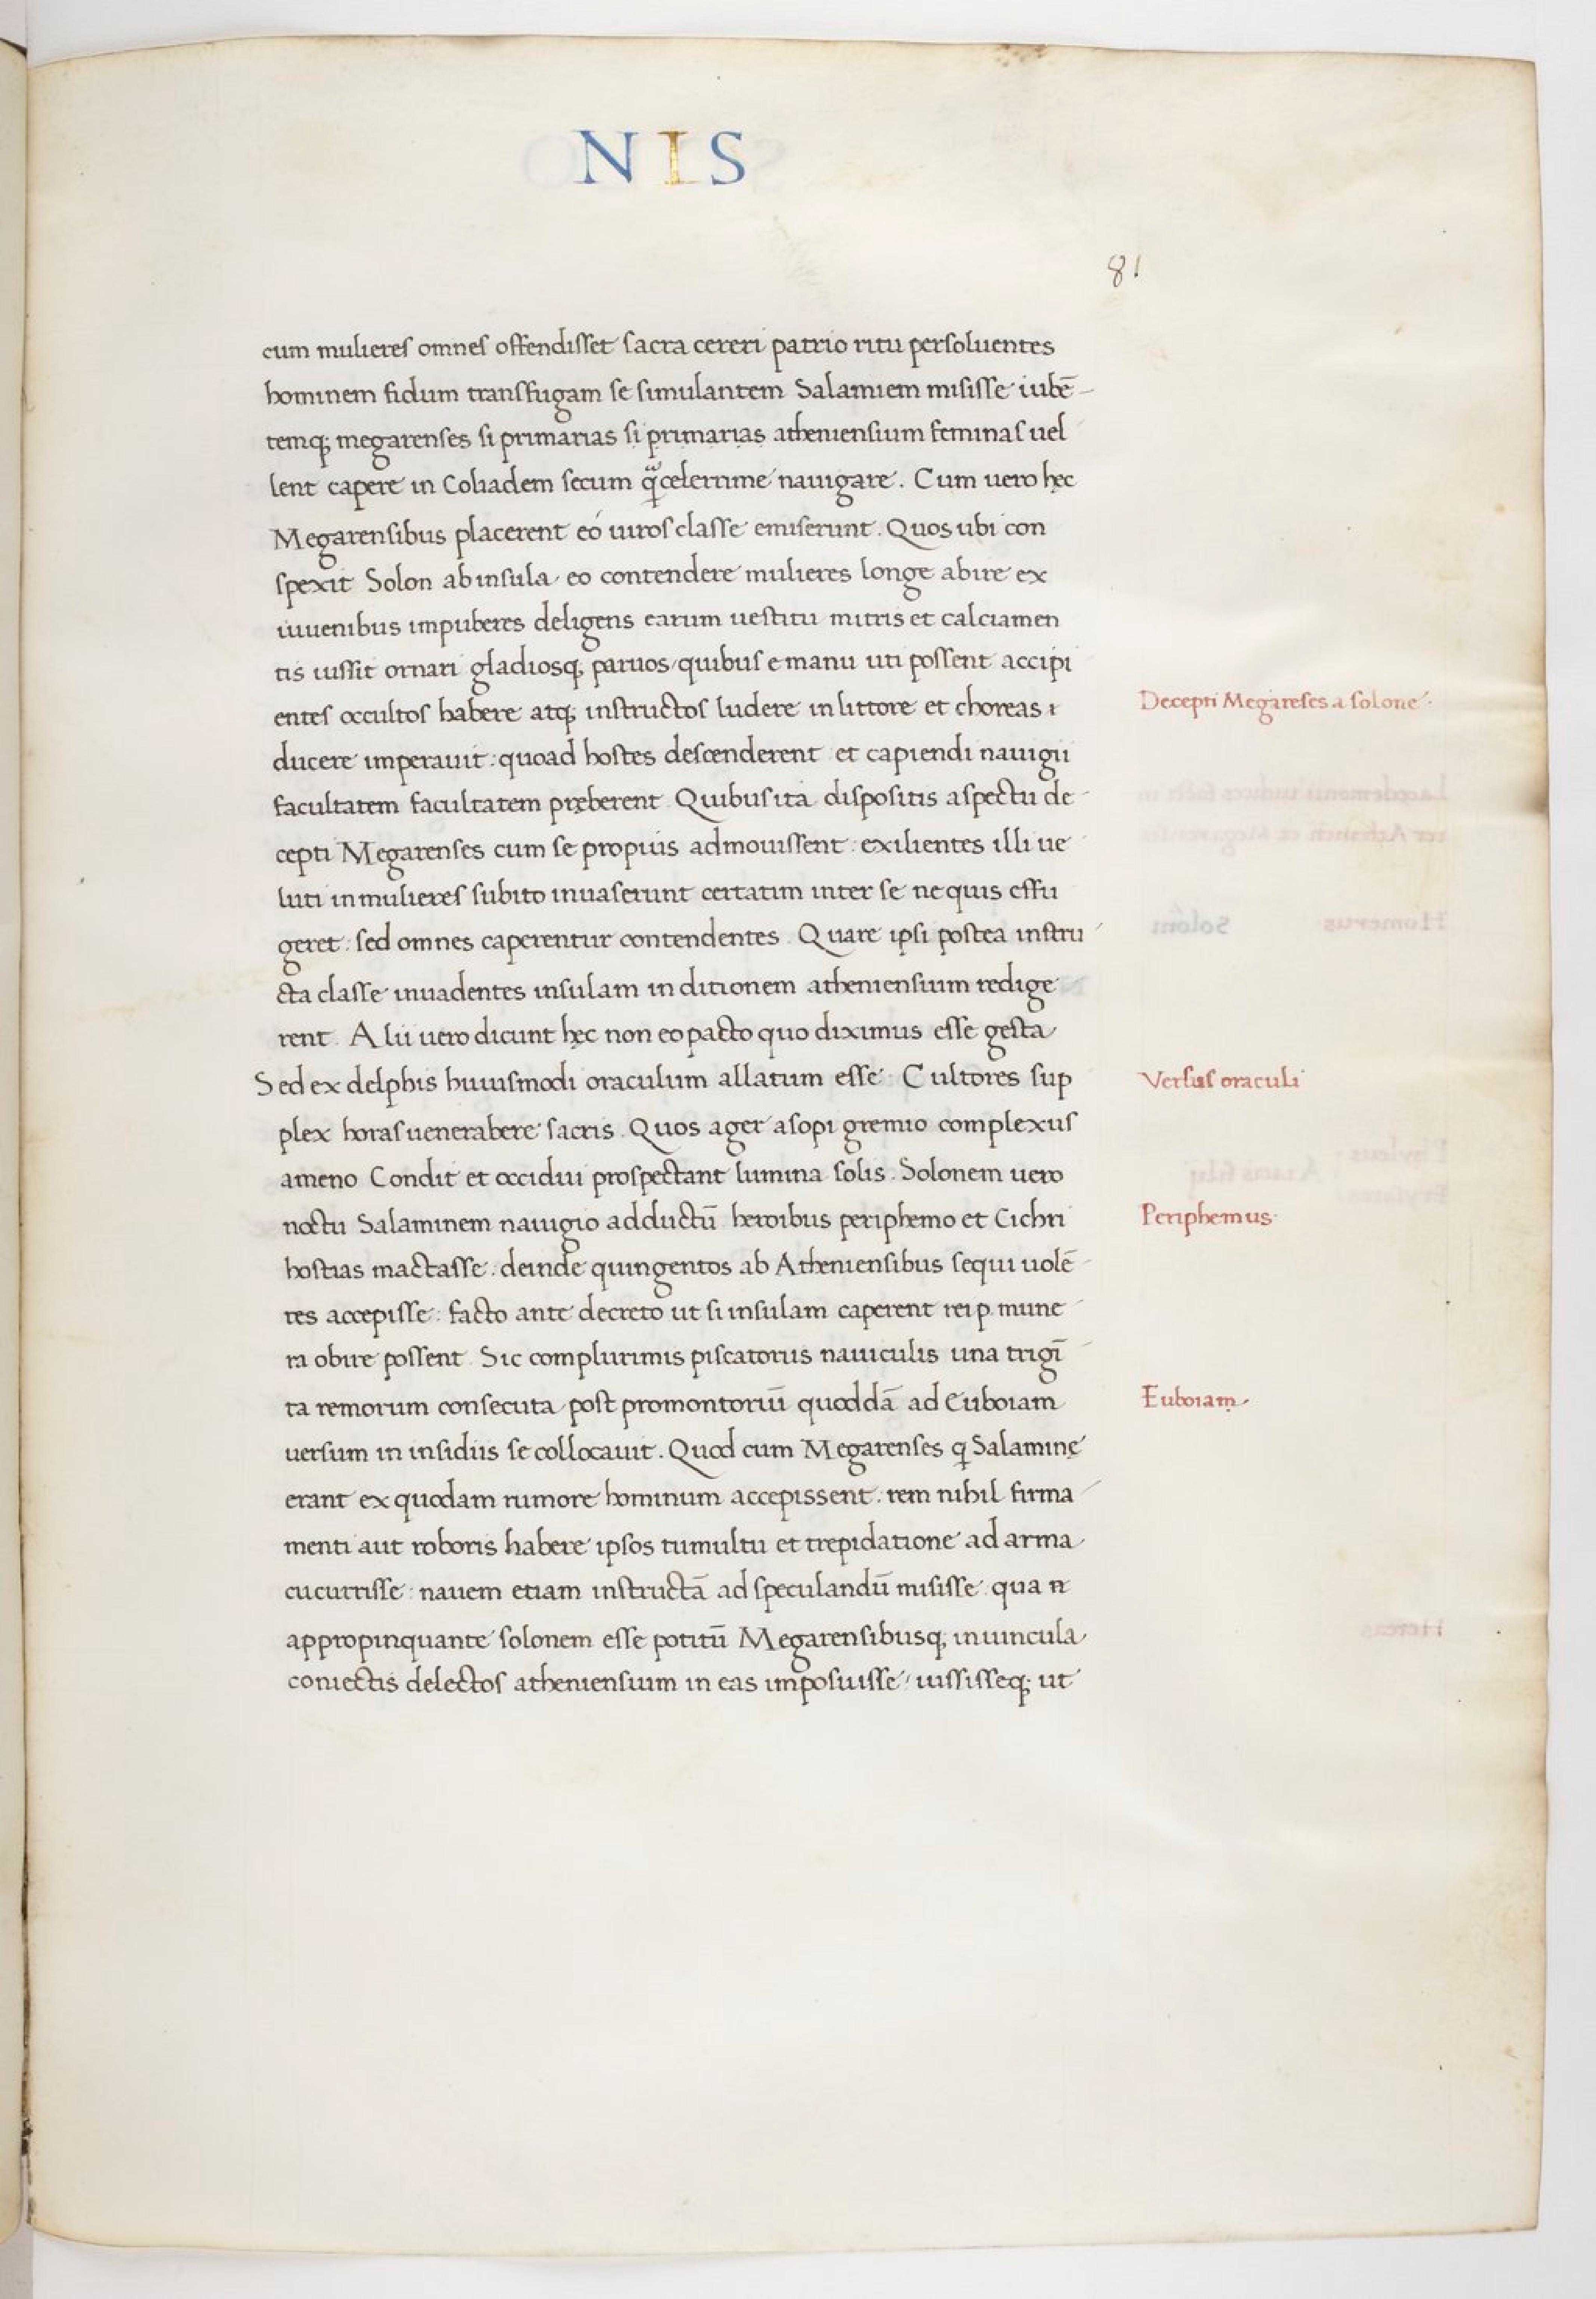 NIS
81
cum mulieres omnes offendisset sacra cereri patrio ritu persoluentes
hominem fidum transfugam se simulantem Salamiem misisse iubē-
temq; megarenses si primarias si primarias atheniensium feminas uel
lent capere in Coliadem secum q̃celerrime nauigare. Cum uero hęc
Megarensibus placerent eó uiros classe emiserunt. Quos ubi con
spexit Solon ab insula, eo contendere mulieres longe abire ex
iuuenibus impuberes deligens earum uestitu mitris et calciamen
tis iussit ornari gladiosq; paruos, quibus e manu uti possent accipi
entes occultos habere atq; instructos ludere in littore et choreas
Decepti Megareses a solone.
ducere imperauit: quoad hostes descenderent et capiendi nauigii
facultatem facultatem pręberent. Quibus ita dispositis aspectu de
cepti Megarenses cum se propius admouissent: exilientes illi ue
luti in mulieres subito inuaserunt certatim inter se ne quis effu
geret: sed omnes caperentur contendentes. Quare ipsi postea instru
cta classe inuadentes insulam in ditionem atheniensium redige
rent. Alii uero dicunt hęc non eo pacto quo diximus esse gesta,
Sed ex delphis huiusmodi oraculum allatum esse. Cultores sup
Versus oraculi
plex horas uenerabere sacris. Quos ager asopi gremio complexus
ameno Condit et occidui prospectant lumina solis. Solonem uero
noctu Salaminem nauigio adductū heroibus periphemo et Cichri
Periphemus.
hostias mactasse: deinde quingentos ab Atheniensibus sequi uolē
tes accepisse: facto ante decreto ut si insulam caperent rei p. mune
ra obire possent. Sic complurimis piscatoriis nauiculis una trigī
ta remorum consecuta, post promontoriū quoddā ad Euboiam
Euboiam.
uersum in insidiis se collocauit. Quod cum Megarenses q Salaminę
erant ex quodam rumore hominum accepissent: rem nihil firma
menti aut roboris habere ipsos tumultu et trepidatione ad arma
cucurrisse: nauem etiam instructā ad speculandū misisse qua
appropinquante solonem esse potitū Megarensibusq; in uincula
coniectis delectos atheniensium in eas imposuisse, iussisseq; ut